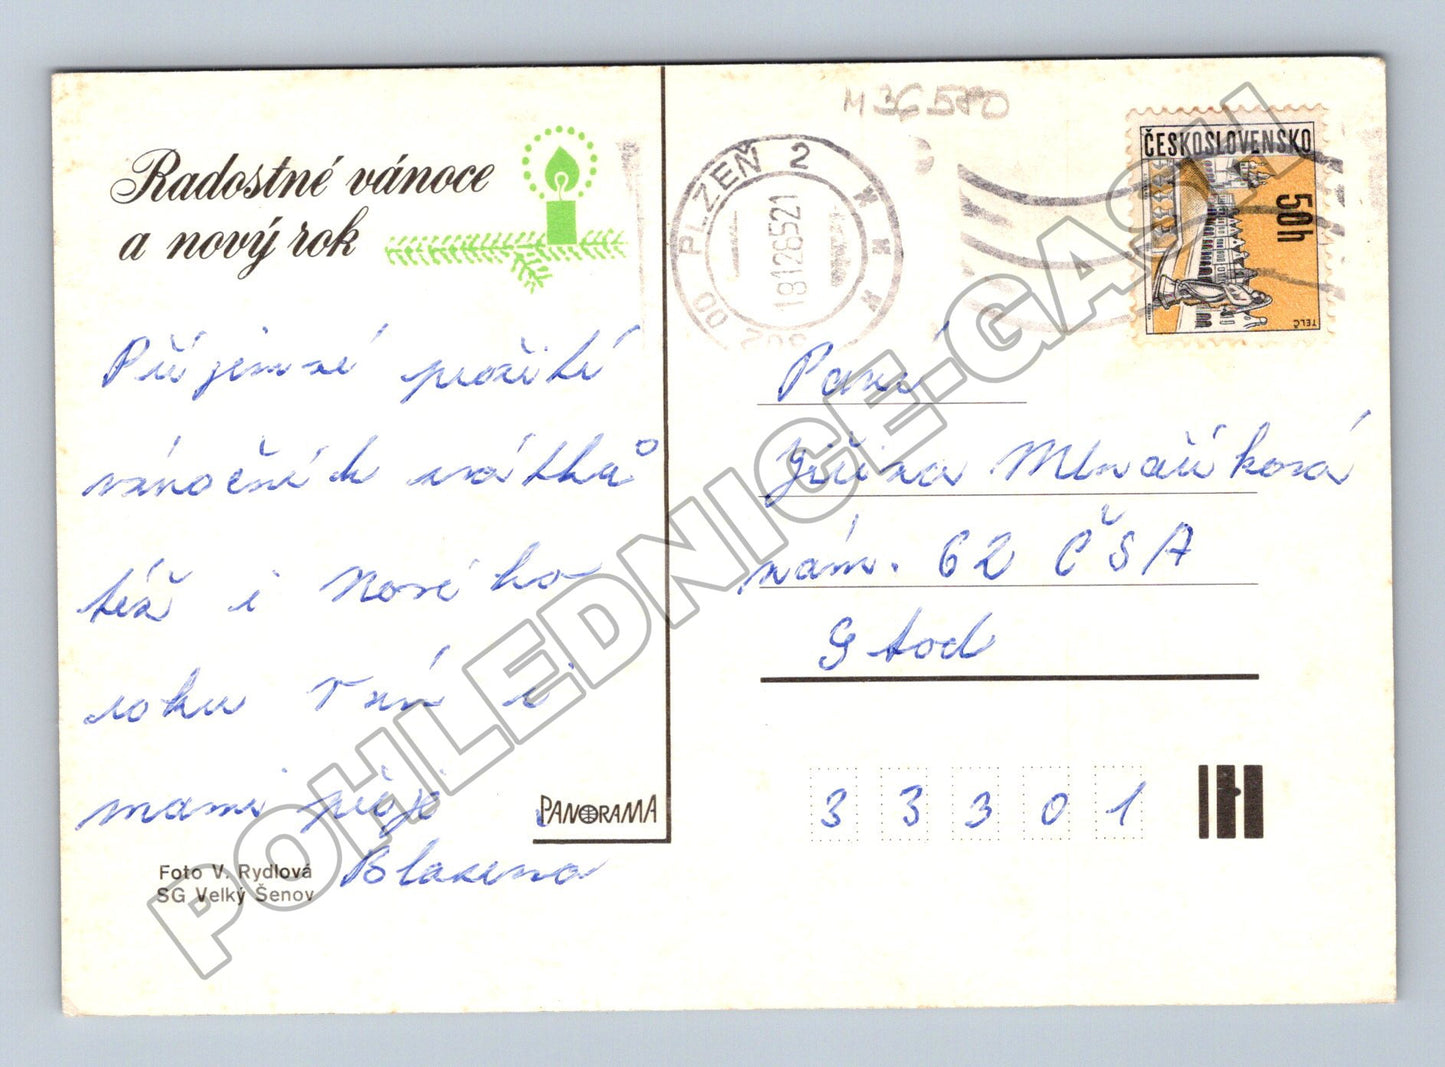 Radostné vánoce
a nový rok
Příjemné prožití
vánočních svátků
též i Nového
roku Vám i
mami přeje
Blažena
PANORAMA
Foto V. Rydlová
SG Velký Šenov
M 36580
PLZEŇ 2
18.12.85 21
ČESKOSLOVENSKO
50h
TELČ
Paní
Jiřina Mlnaříková
nám. 62 ČSA
Stod
3 3 3 0 1
POHLEDNICE-GASH